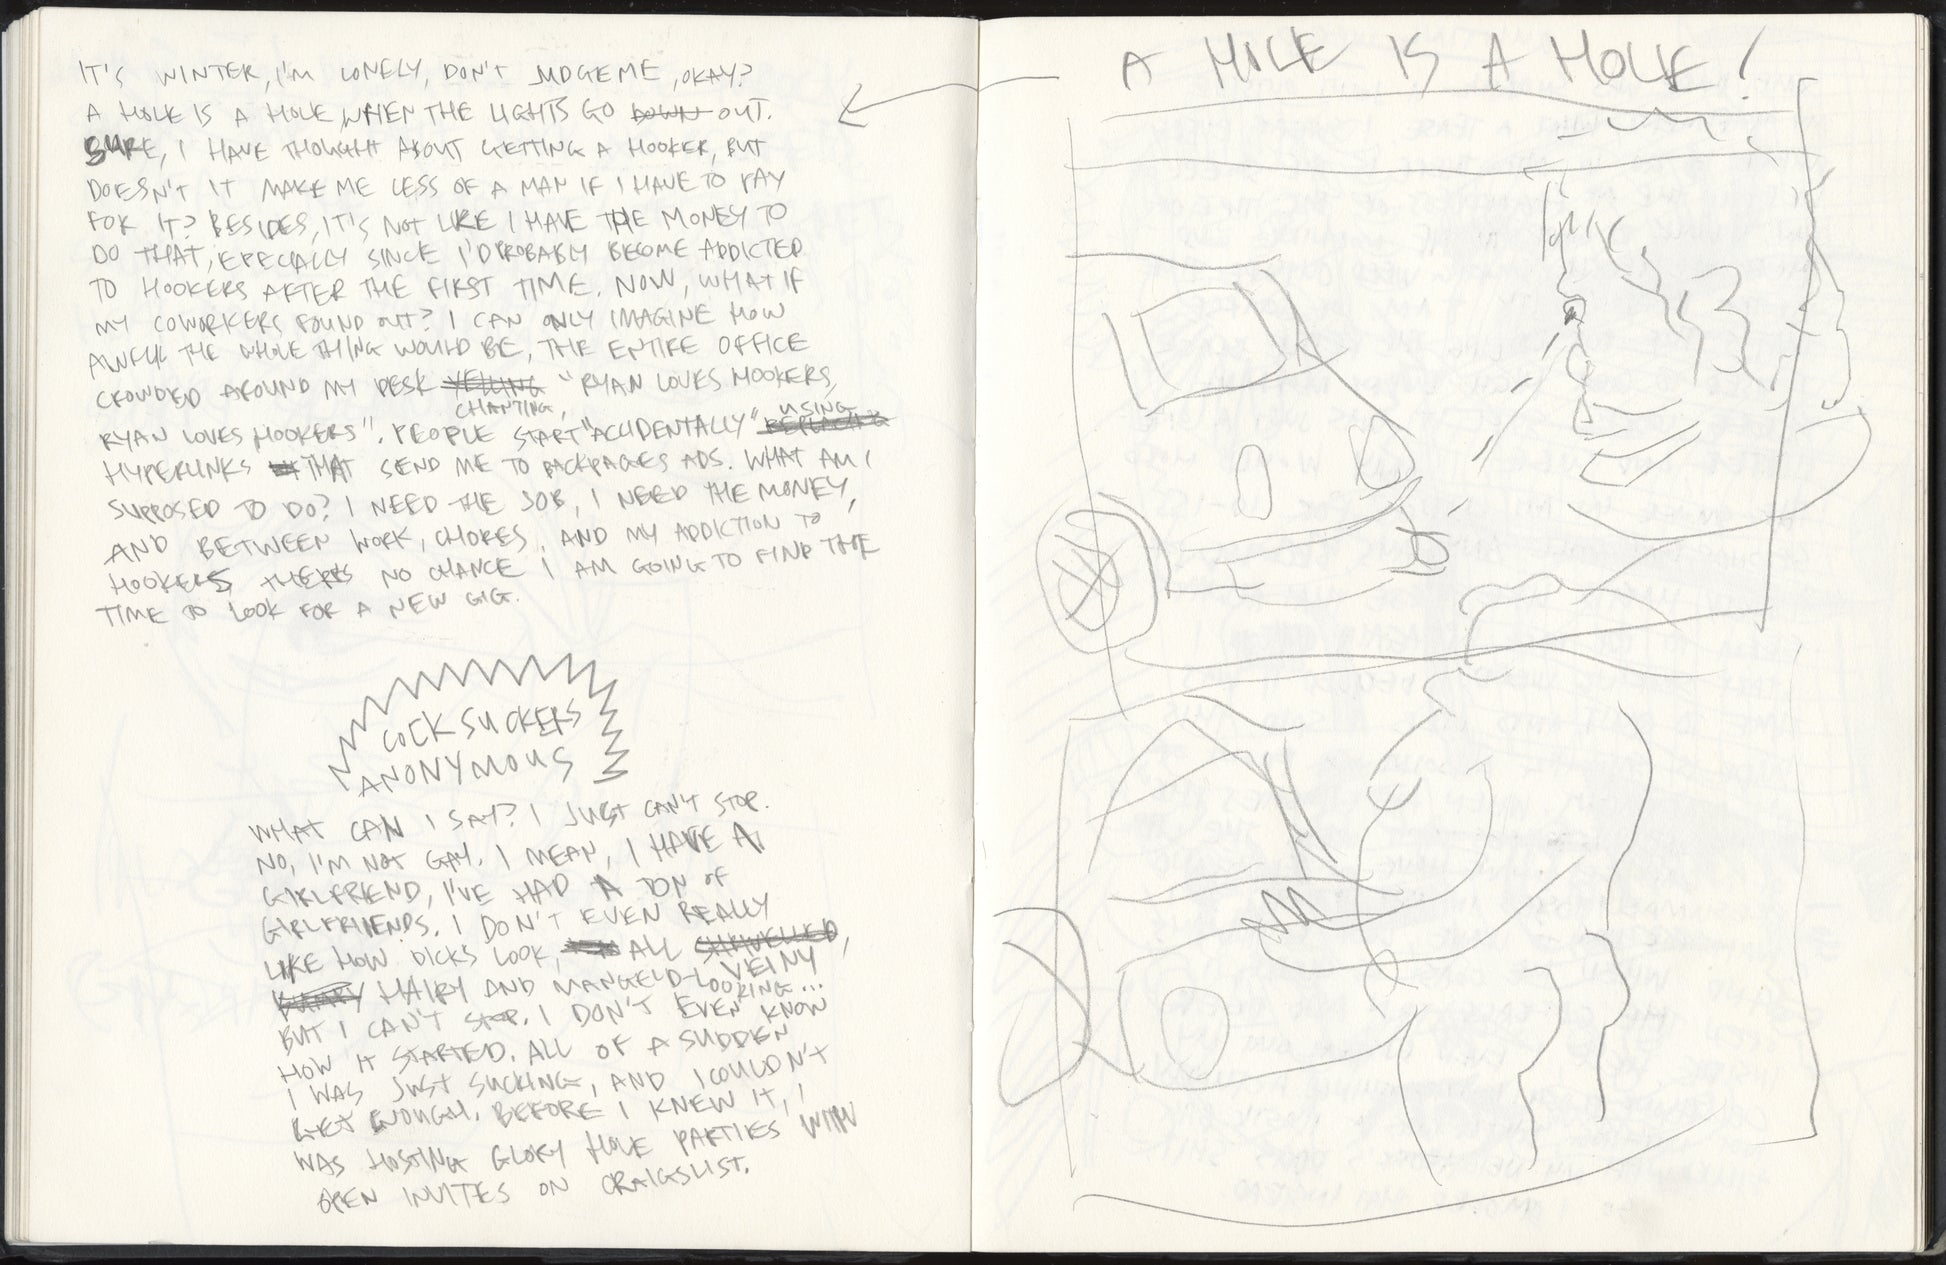 IT'S WINTER, I'M LONELY, DON'T JUDGE ME, OKAY?
A HOLE IS A HOLE WHEN THE LIGHTS GO DOWN OUT.
SURE, I HAVE THOUGHT ABOUT GETTING A HOOKER, BUT
DOESN'T IT MAKE ME LESS OF A MAN IF I HAVE TO PAY
FOR IT? BESIDES, IT'S NOT LIKE I HAVE THE MONEY TO
DO THAT, EPECIALLY SINCE I'D PROBABLY BECOME ADDICTED
TO HOOKERS AFTER THE FIRST TIME. NOW, WHAT IF
MY COWORKERS FOUND OUT? I CAN ONLY IMAGINE HOW
AWFUL THE WHOLE THING WOULD BE, THE ENTIRE OFFICE
CROWDED AROUND MY DESK YELLING "RYAN LOVES HOOKERS,
CHANTING, USING
RYAN LOVES HOOKERS". PEOPLE START "ACCIDENTALLY"
HYPERLINKS THAT SEND ME TO BACKPAGES ADS. WHAT AM I
SUPPOSED TO DO? I NEED THE JOB, I NEED THE MONEY,
AND BETWEEN WORK, CHORES, AND MY ADDICTION TO
HOOKERS THERES NO CHANCE I AM GOING TO FIND THE
TIME TO LOOK FOR A NEW GIG.
COCKSUCKERS
ANONYMOUS
WHAT CAN I SAY? I JUST CAN'T STOP.
NO, I'M NOT GAY. I MEAN, I HAVE A
GIRLFRIEND, I'VE HAD A TON OF
GIRLFRIENDS. I DON'T EVEN REALLY
LIKE HOW DICKS LOOK, ALL SHRIVELED,
VEINY
HAIRY AND MANGELD-LOOKING...
BUT I CAN'T STOP. I DON'T EVEN KNOW
HOW IT STARTED. ALL OF A SUDDEN
I WAS JUST SUCKING, AND I COULDN'T
GET ENOUGH. BEFORE I KNEW IT, I
WAS HOSTING GLORY HOLE PARTIES WITH
OPEN INVITES ON CRAIGSLIST.
A HOLE IS A HOLE!